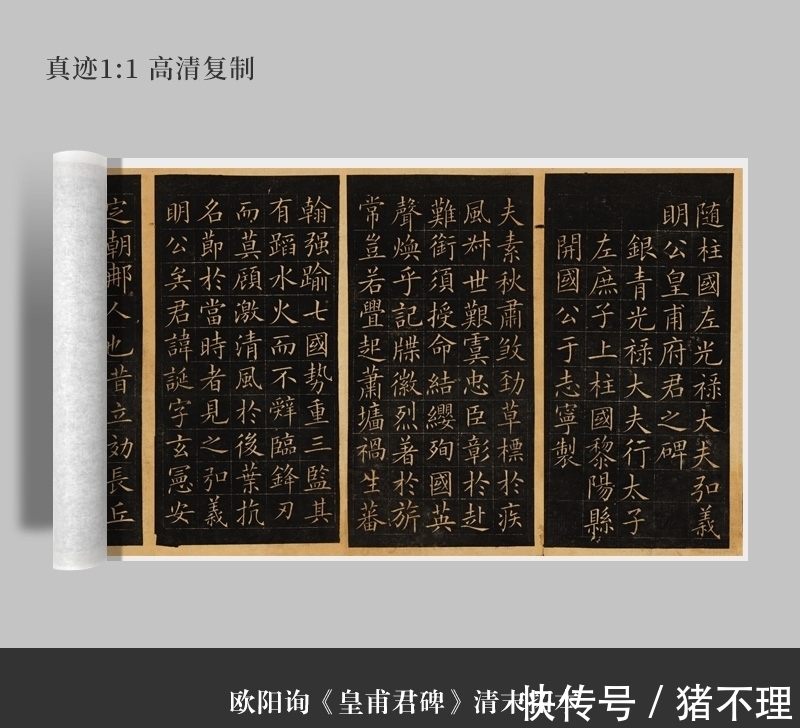 真迹1:1 高清复制
隨柱國左光祿大夫弘義
明公皇甫府君之碑
銀青光祿大夫行太子
左庶子上柱國黎陽縣
開國公于志寧製
夫素秋肅煞勁草標於疾
風叶世艱虞忠臣彰於赴
難銜須授命結纓殉國英
聲煥乎記牒徽烈著於旂
常豈若舋起蕭墻禍生蕃
翰强踰七國勢重三監其
有蹈水火而不辤臨鋒刃
而莫顧激清風於後葉抗
名節於當時者見之弘義
明公矣君諱誕字玄憲安
定朝那人也昔立効長丘
欧阳询《皇甫君碑》清末
快传号 / 猪不理